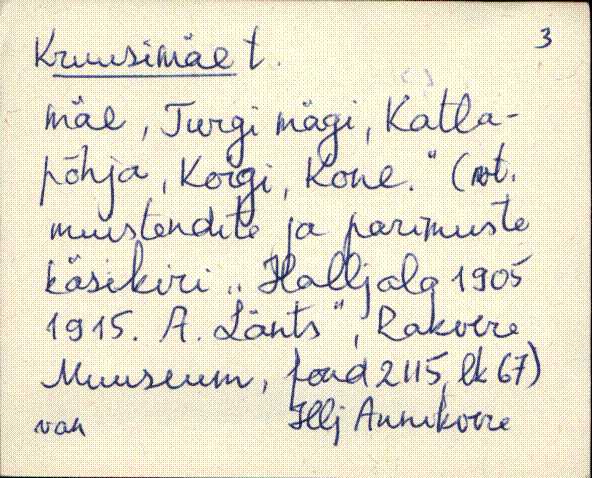 3
Kruusimäe t.
mäe, Turgi mägi, Katla-
põhja, Korgi, Kone." (vt.
muistendite ja pärimuste
käsikiri „Halljalg 1905
1915. A. Länts", Rakvere
Muuseum, fond 2115, lk 67)
van Hlj Annikvere